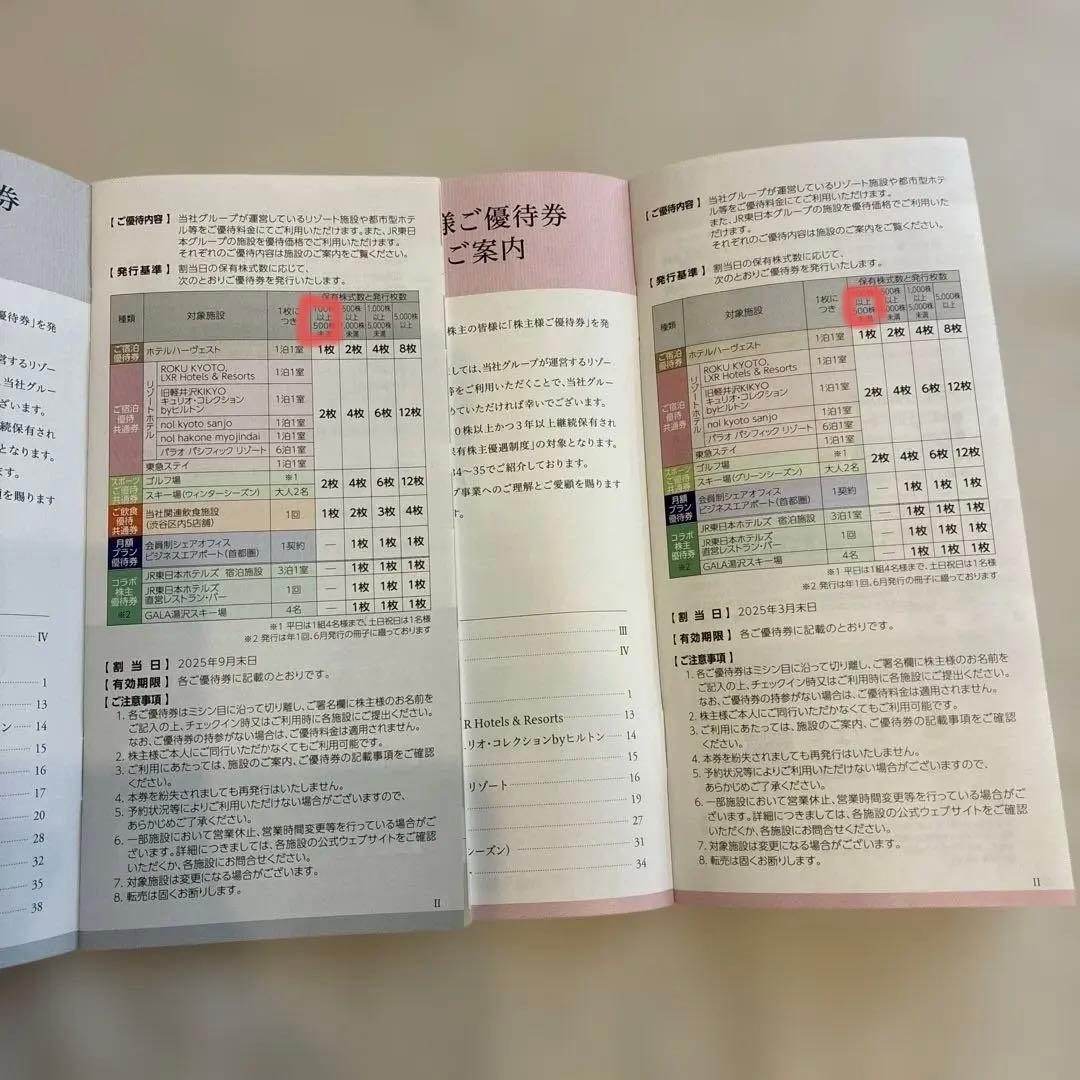 券
優待券」を発
営するリゾー
、当社グルー
ざいます。
続保有され
となります。
ます。
を賜ります
IV
1
13
ン 14
15
16
17
20
28
32
35
38
【ご優待内容】 当社グループが運営しているリゾート施設や都市型ホテ
ル等をご優待料金にてご利用いただけます。また、JR東日
本グループの施設を優待価格でご利用いただけます。
それぞれのご優待内容は施設のご案内をご覧ください。
【発行基準】 割当日の保有株式数に応じて、
次のとおりご優待券を発行いたします。
種類 対象施設 1枚につき 保有株式数と発行枚数
100株以上500株未満 500株以上1,000株未満 1,000株以上5,000株未満 5,000株以上
ご宿泊優待券 ホテルハーヴェスト 1泊1室 1枚 2枚 4枚 8枚
ご宿泊優待共通券 リゾートホテル ROKU KYOTO, LXR Hotels & Resorts 1泊1室 2枚 4枚 6枚 12枚
旧軽井沢KIKYO キュリオ・コレクション byヒルトン 1泊1室
nol kyoto sanjo 1泊1室
nol hakone myojindai 1泊1室
パラオ パシフィック リゾート 6泊1室
東急ステイ 1泊1室
スポーツご優待共通券 ゴルフ場 ※1 2枚 4枚 6枚 12枚
スキー場(ウィンターシーズン) 大人2名
ご飲食優待共通券 当社関連飲食施設(渋谷区内5店舗) 1回 1枚 2枚 3枚 4枚
月額プラン優待券 会員制シェアオフィス ビジネスエアポート(首都圏) 1契約 — 1枚 1枚 1枚
コラボ株主優待券 ※2 JR東日本ホテルズ 宿泊施設 3泊1室 — 1枚 1枚 1枚
JR東日本ホテルズ 直営レストラン・バー 1回 — 1枚 1枚 1枚
GALA湯沢スキー場 4名 — 1枚 1枚 1枚
※1 平日は1組4名様まで、土日祝日は1名様
※2 発行は年1回、6月発行の冊子に綴っております
【割当日】 2025年9月末日
【有効期限】 各ご優待券に記載のとおりです。
【ご注意事項】
1. 各ご優待券はミシン目に沿って切り離し、ご署名欄に株主様のお名前を
ご記入の上、チェックイン時又はご利用時に各施設にご提出ください。
なお、ご優待券の持参がない場合は、ご優待料金は適用されません。
2. 株主様ご本人にご同行いただかなくてもご利用可能です。
3. ご利用にあたっては、施設のご案内、ご優待券の記載事項をご確認
ください。
4. 本券を紛失されましても再発行はいたしません。
5. 予約状況等によりご利用いただけない場合がございますので、
あらかじめご了承ください。
6. 一部施設において営業休止、営業時間変更等を行っている場合がご
ざいます。詳細につきましては、各施設の公式ウェブサイトをご確認
いただくか、各施設にお問合せください。
7. 対象施設は変更になる場合がございます。
8. 転売は固くお断りします。
II
様ご優待券
ご案内
株主の皆様に「株主様ご優待券」を発
しては、当社グループが運営するリゾー
等をご利用いただくことで、当社グルー
めていただければ幸いでございます。
0株以上かつ3年以上継続保有され
保有株主優遇制度」の対象となります。
34〜35でご紹介しております。
プ事業へのご理解とご愛顧を賜ります
す。
III
IV
1
R Hotels & Resorts 13
リオ・コレクションbyヒルトン 14
15
リゾート 16
19
27
シーズン) 31
34
【ご優待内容】 当社グループが運営しているリゾート施設や都市型ホテ
ル等をご優待料金にてご利用いただけます。
また、JR東日本グループの施設を優待価格でご利用いた
だけます。
それぞれのご優待内容は施設のご案内をご覧ください。
【発行基準】 割当日の保有株式数に応じて、
次のとおりご優待券を発行いたします。
種類 対象施設 1枚につき 保有株式数と発行枚数
以上500株 500株以上1,000株未満 1,000株以上5,000株未満 5,000株以上
ご宿泊優待券 ホテルハーヴェスト 1泊1室 1枚 2枚 4枚 8枚
ご宿泊優待共通券 リゾートホテル ROKU KYOTO, LXR Hotels & Resorts 1泊1室 2枚 4枚 6枚 12枚
旧軽井沢KIKYO キュリオ・コレクション byヒルトン 1泊1室
nol kyoto sanjo 1泊1室
パラオ パシフィック リゾート 6泊1室
東急ステイ 1泊1室
スポーツご優待共通券 ゴルフ場 ※1 2枚 4枚 6枚 12枚
スキー場(グリーンシーズン) 大人2名 — 1枚 1枚 1枚
月額プラン優待券 会員制シェアオフィス ビジネスエアポート(首都圏) 1契約 — 1枚 1枚 1枚
コラボ株主優待券 ※2 JR東日本ホテルズ 宿泊施設 3泊1室 — 1枚 1枚 1枚
JR東日本ホテルズ 直営レストラン・バー 1回 — 1枚 1枚 1枚
GALA湯沢スキー場 4名
※1 平日は1組4名様まで、土日祝日は1名様
※2 発行は年1回、6月発行の冊子に綴っております
【割当日】 2025年3月末日
【有効期限】 各ご優待券に記載のとおりです。
【ご注意事項】
1. 各ご優待券はミシン目に沿って切り離し、ご署名欄に株主様のお名前を
ご記入の上、チェックイン時又はご利用時に各施設にご提出ください。
なお、ご優待券の持参がない場合は、ご優待料金は適用されません。
2. 株主様ご本人にご同行いただかなくてもご利用可能です。
3. ご利用にあたっては、施設のご案内、ご優待券の記載事項をご確認
ください。
4. 本券を紛失されましても再発行はいたしません。
5. 予約状況等によりご利用いただけない場合がございますので、
あらかじめご了承ください。
6. 一部施設において営業休止、営業時間変更等を行っている場合がござ
います。詳細につきましては、各施設の公式ウェブサイトをご確認い
ただくか、各施設にお問合せください。
7. 対象施設は変更になる場合がございます。
8. 転売は固くお断りします。
II